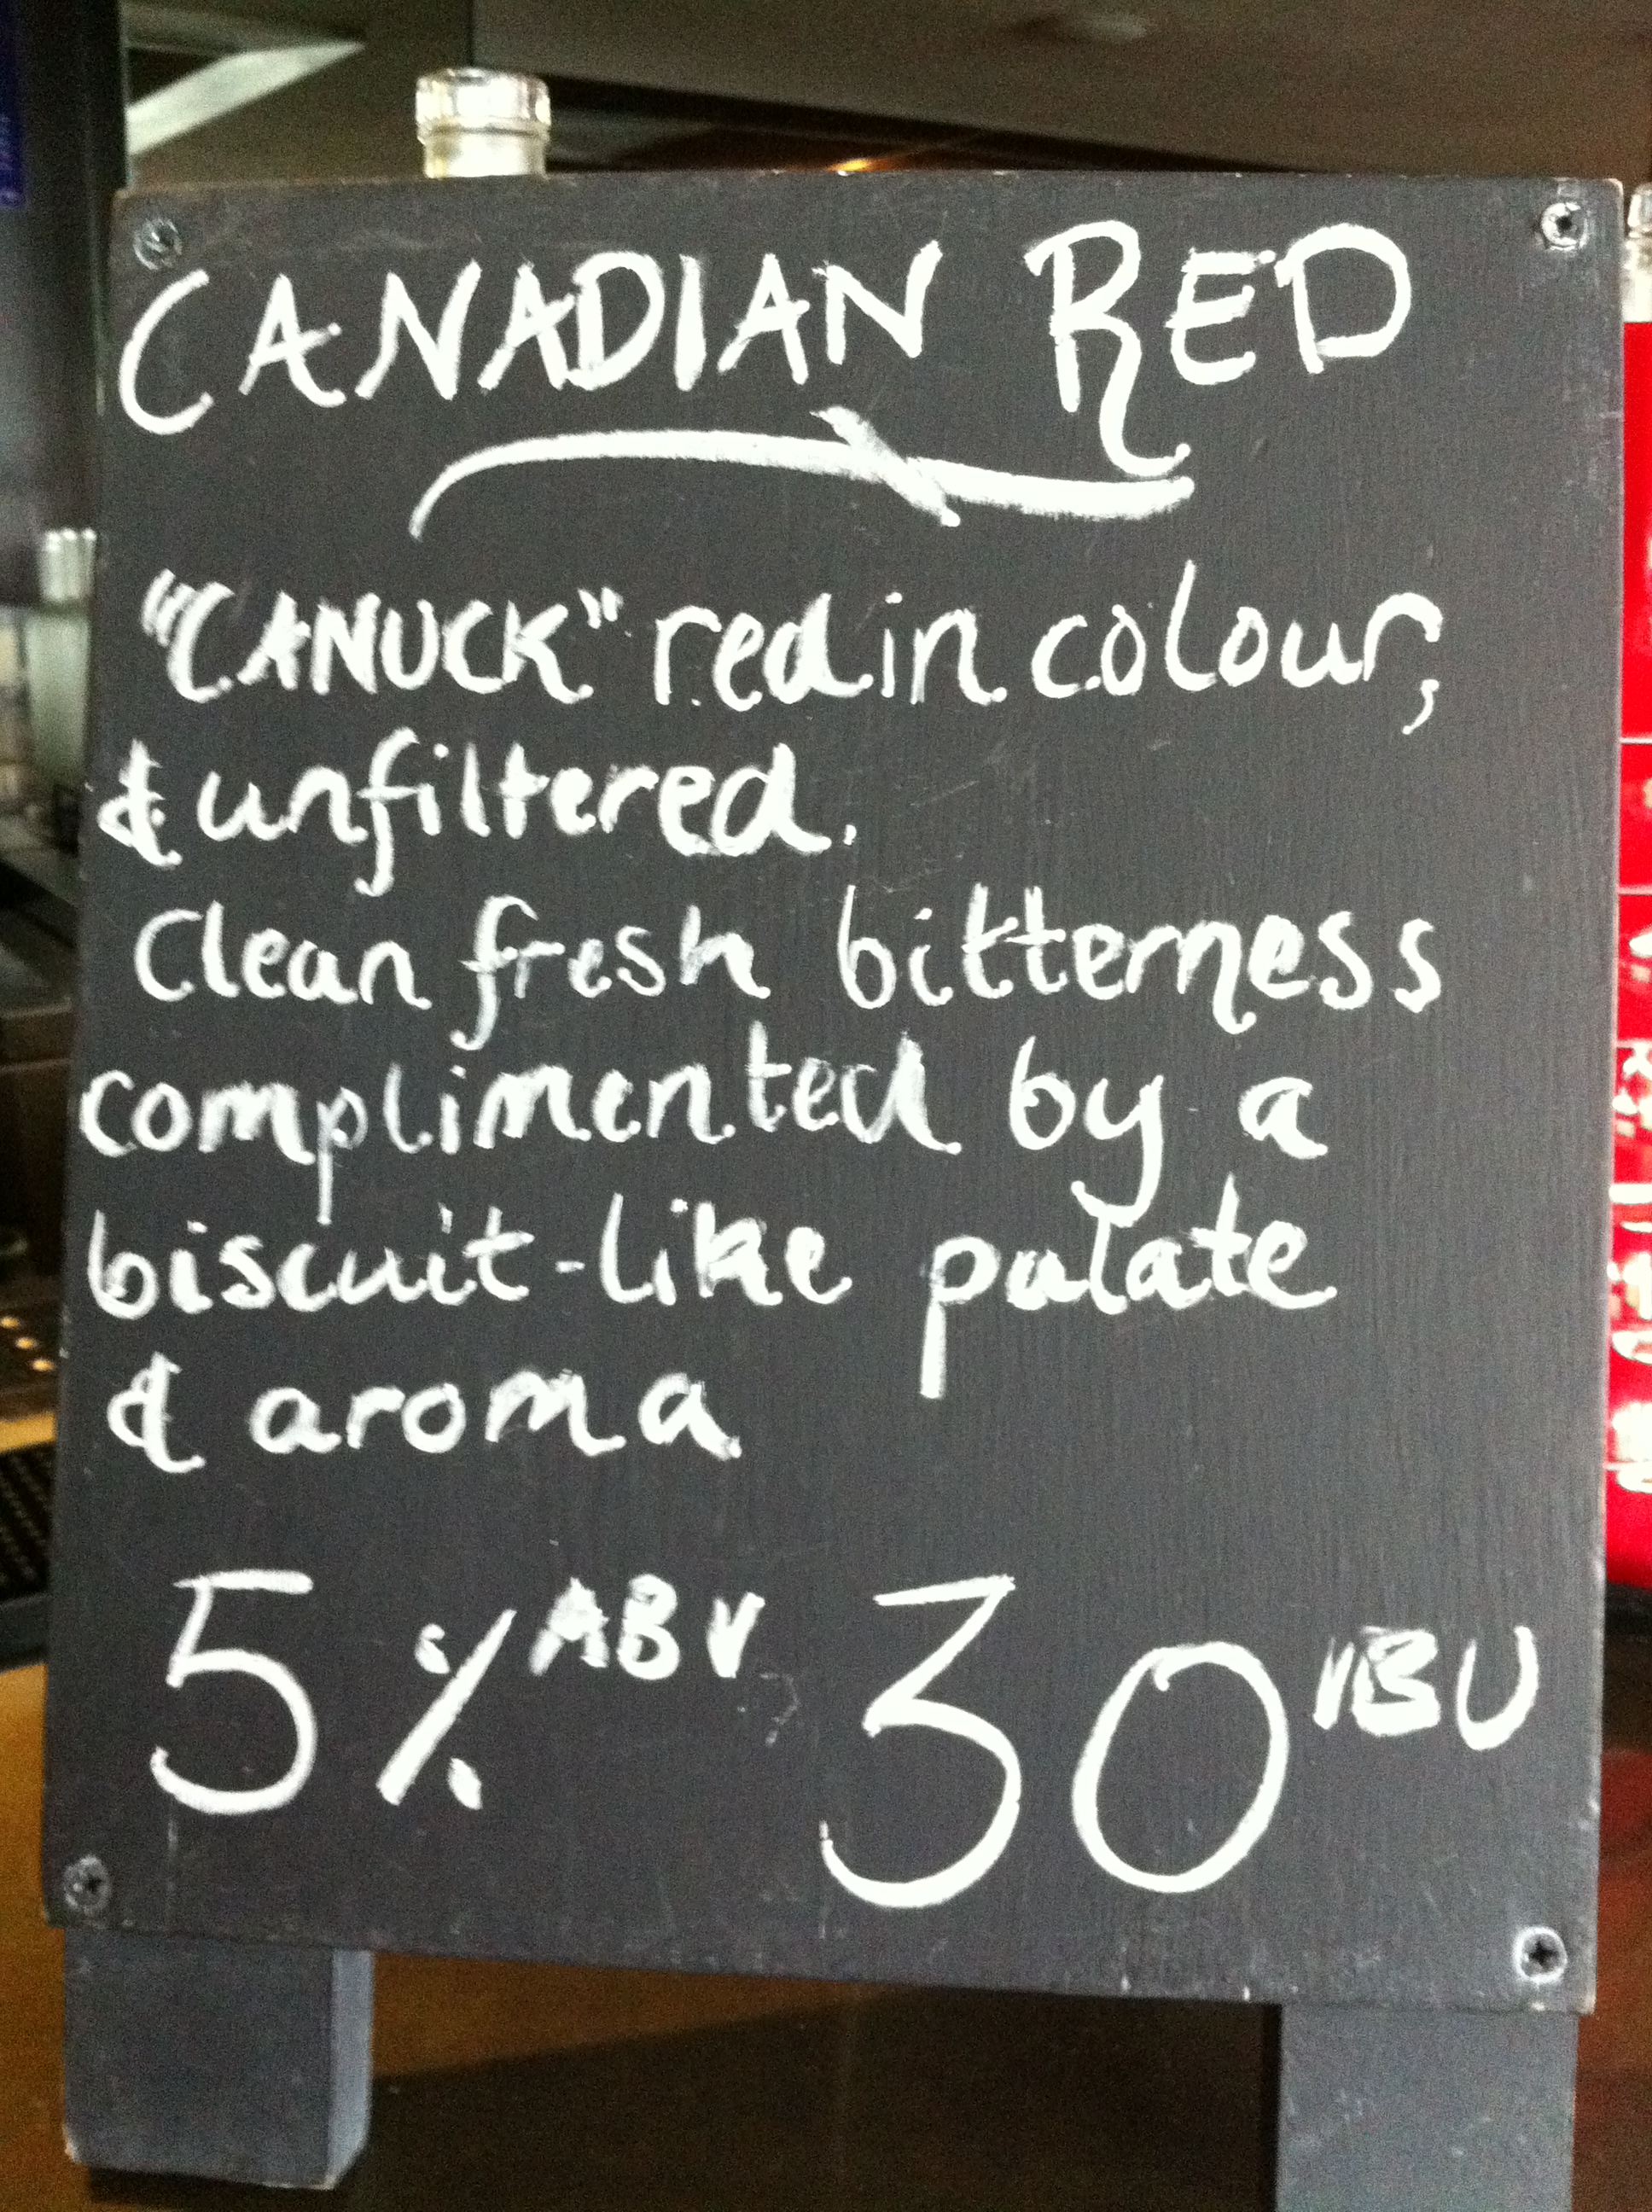 CANADIAN RED
"CANUCK" red in colour,
& unfiltered.
Clean fresh bitterness
complimented by a
biscuit-like palate
& aroma
5% ABV 30 IBU